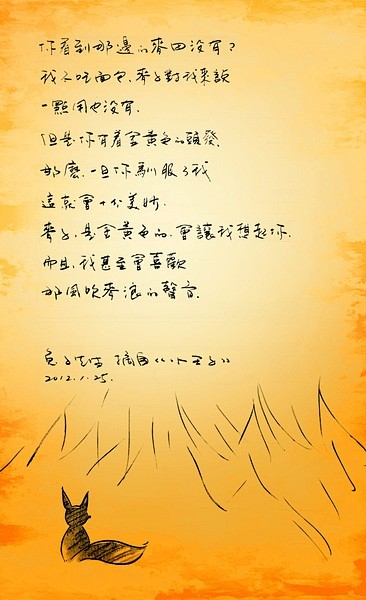 你看到那邊的麥田沒有？
我不吃面包，麥子對我來說
一點用也沒有.
但是你有着金黃色的頭發
那麼，一旦你馴服了我
這就會十分美妙.
麥子，是金黃色的，會讓我想起你.
而且，我甚至會喜歡
那風吹麥浪的聲音.
兔子先生 摘自《小王子》
2012.1.25.